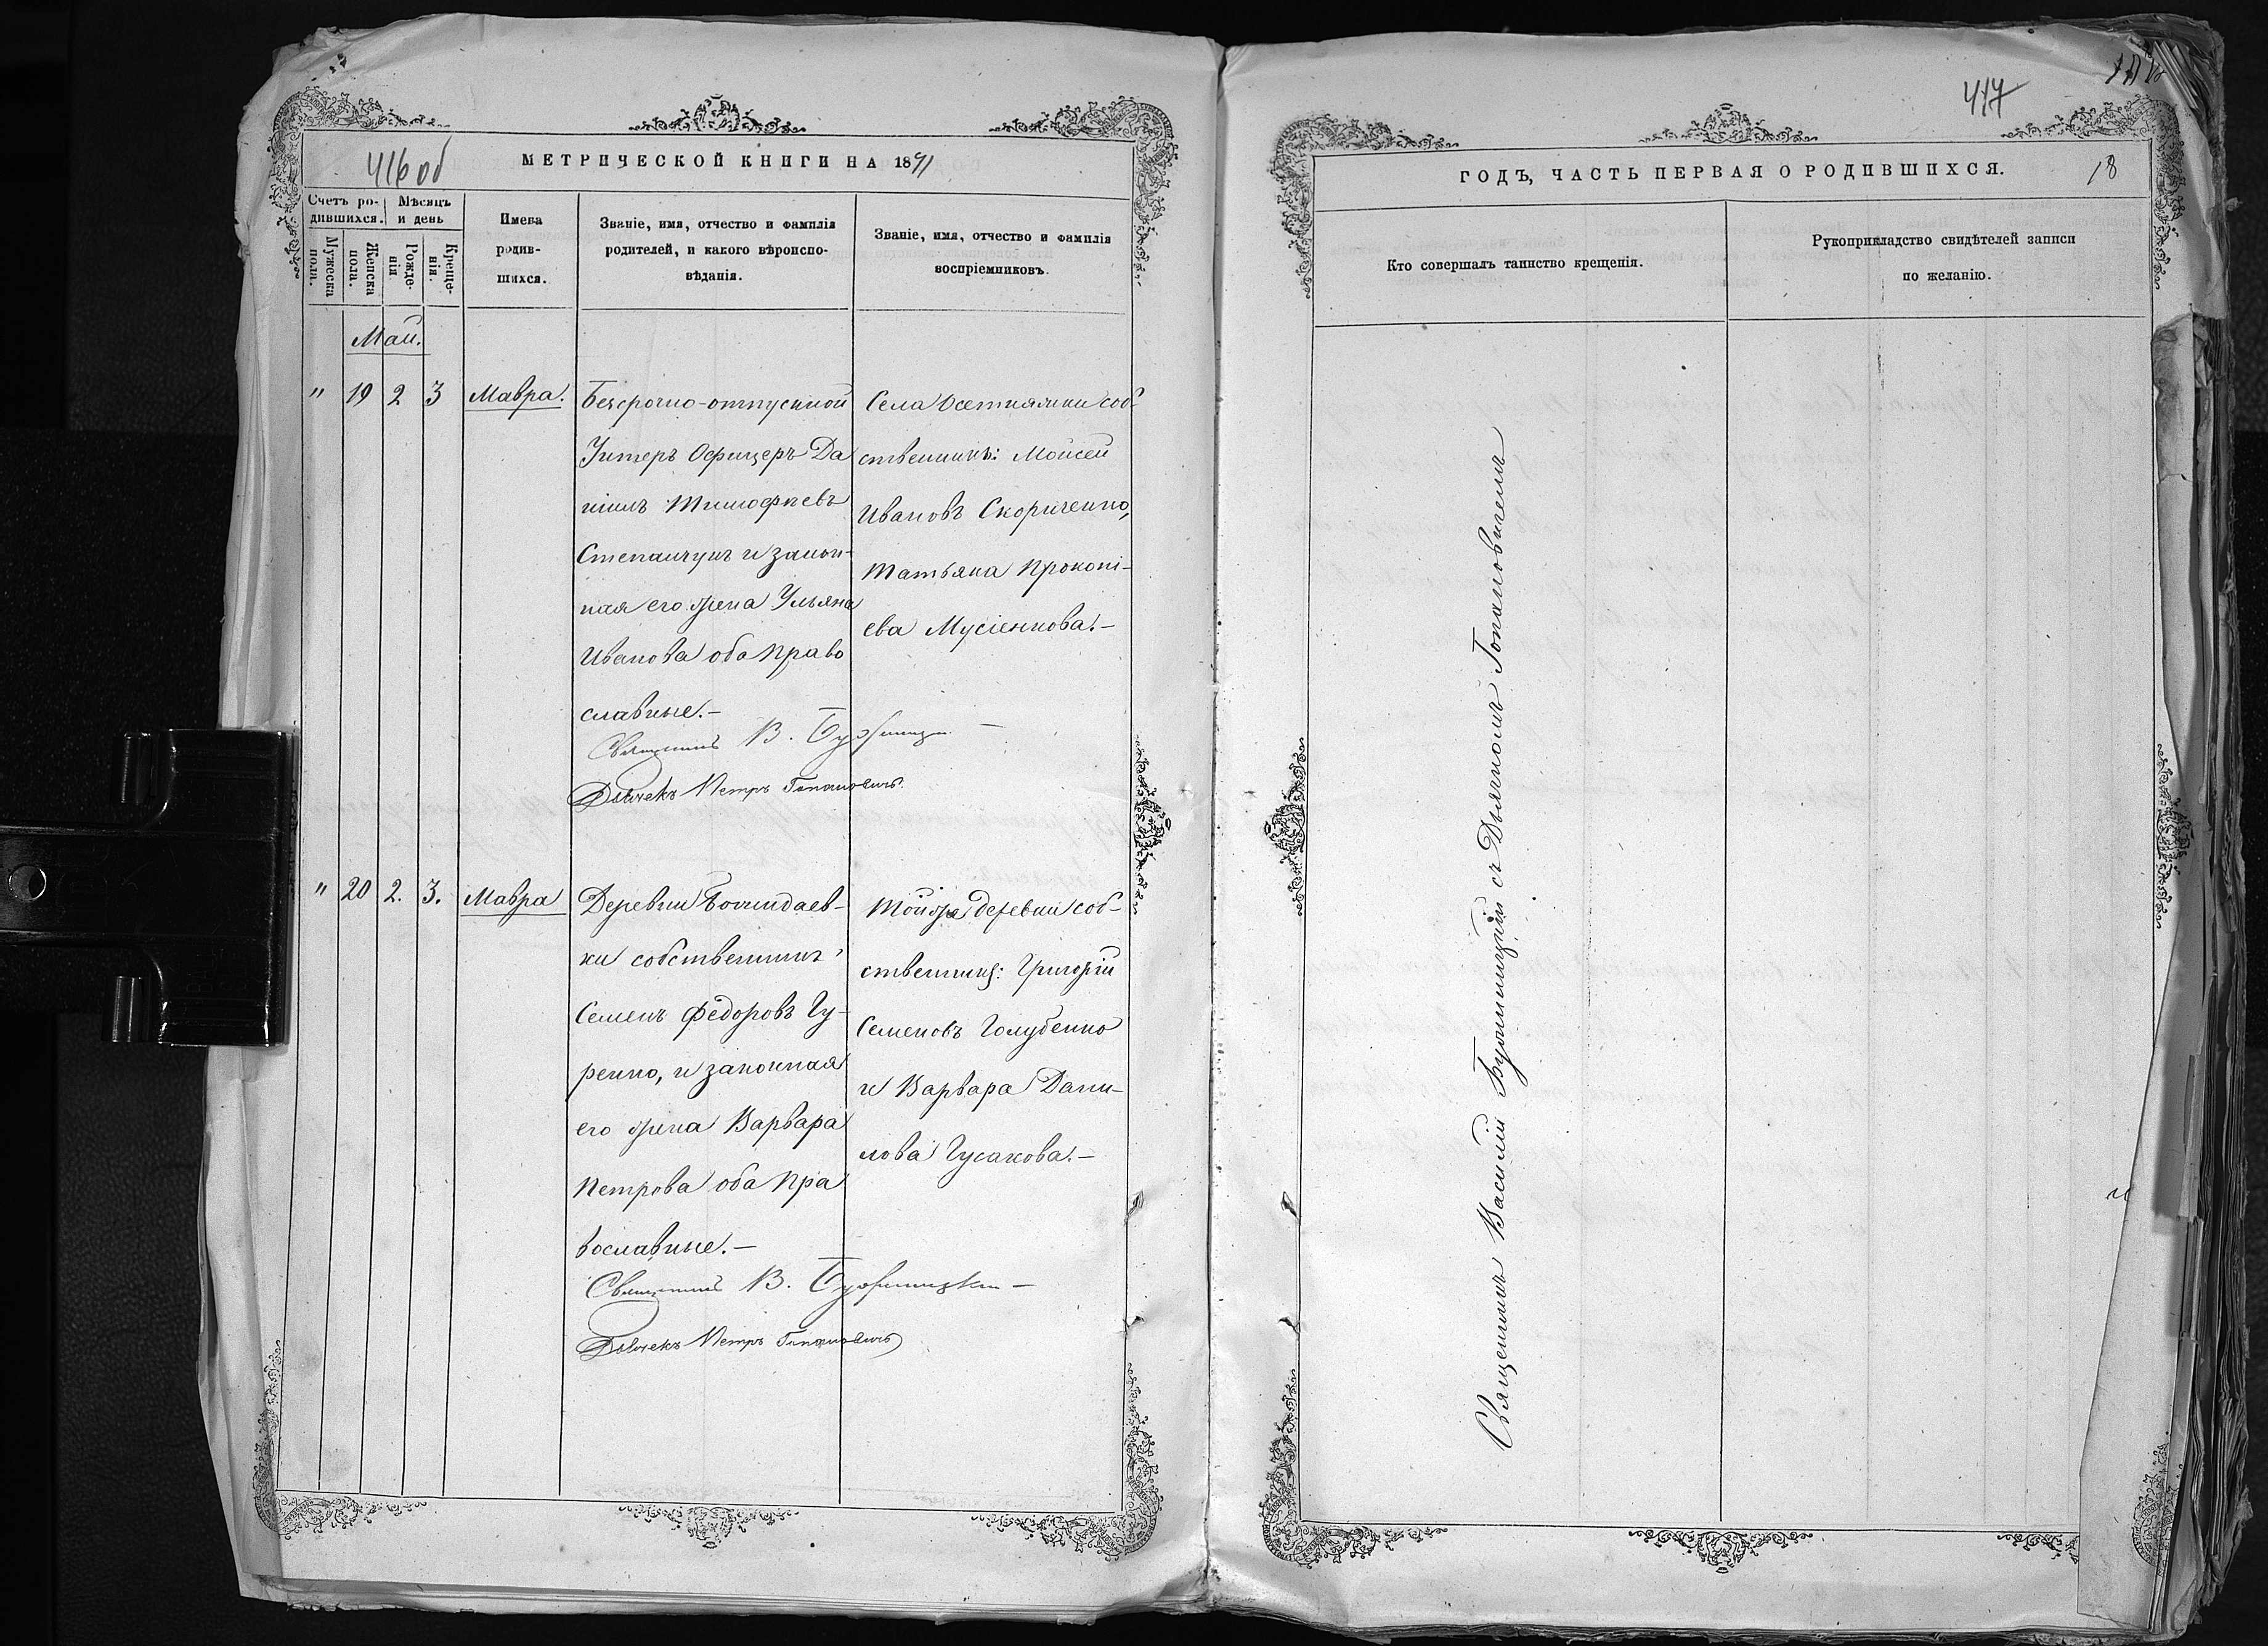 416 об
МЕТРИЧЕСКОЙ КНИГИ НА 1891
Счетъ ро-
дившихся.
Мѣсяцъ
и день
Мужеска
пола.
Женска
пола.
Рожде-
нія
Креще-
нія.
Имена
родив-
шихся.
Званіе, имя, отчество и фамилія
родителей, и какого вѣроиспо-
вѣданія.
Званіе, имя, отчество и фамилія
воспріемниковъ.
Май.
" 19 2 3 Мавра.
Безсрочно-отпускной
Унтеръ Офицеръ Да
ніилъ Тимофѣевъ
Степанчукъ и закон-
ная его жена Ульяна
Иванова оба право
славные.-
Священникъ В.
Дьячекъ Петръ
Села Осетняжки соб-
ственники: Моисей
Ивановъ Скориченко,
Татьяна Прокопі-
ева Мусіенкова.-
" 20 2. 3. Мавра
Деревни
ки собственникъ
Семенъ Федоровъ Гу-
ренко, и законная
его жена Варвара
Петрова оба пра
вославные.-
Священникъ В.
Дьячекъ Петръ
Той же деревни соб-
ственники: Григорій
Семеновъ Голубенко
и Варвара Дани-
лова Гусакова.-
417
18
ГОДЪ, ЧАСТЬ ПЕРВАЯ О РОДИВШИХСЯ.
Кто совершалъ таинство крещенія.
Рукоприкладство свидѣтелей записи
по желанію.
Священникъ Василій Бужницкій съ Дьячкомъ Гопановичемъ